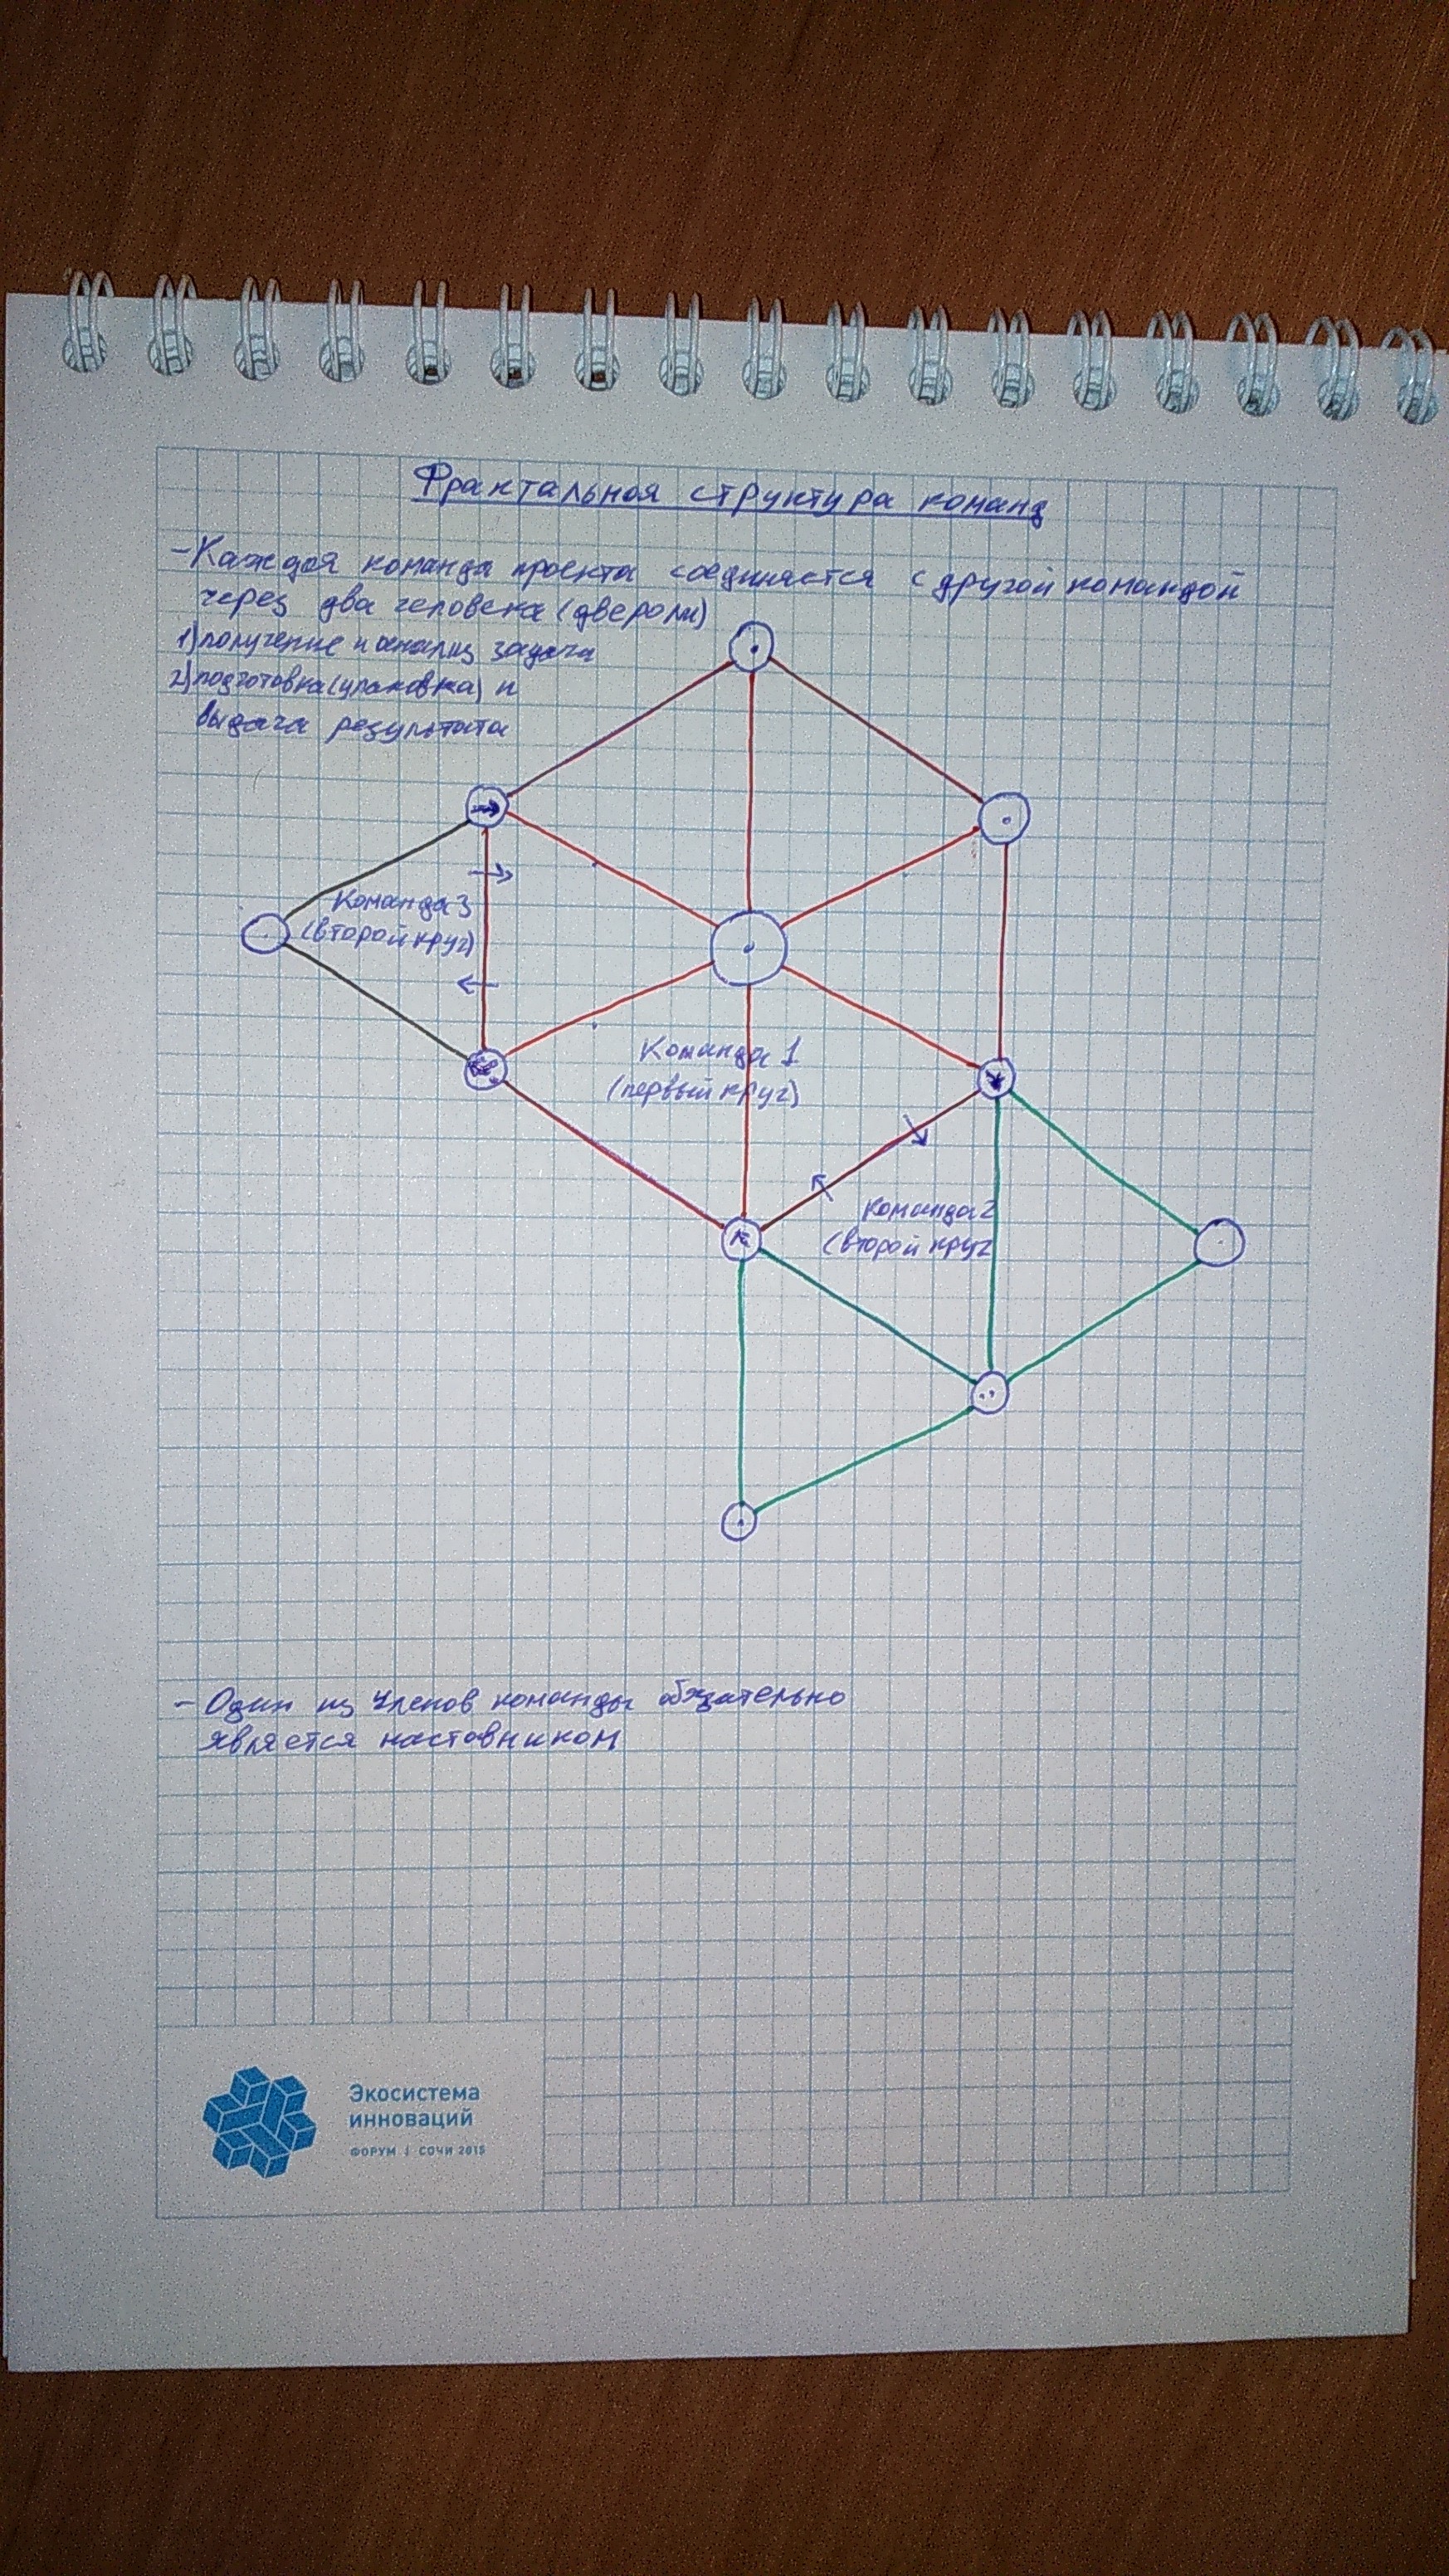 Фрактальная структура команд
- Каждая команда проекта соединяется с другой командой
через два человека (две роли)
1) получение и анализ задача
2) подготовка (упаковка) и
выдача результата
Команда 3
(второй круг)
Команда 1
(первый круг)
Команда 2
(второй круг
- Один из членов команды обязательно
является наставником
Экосистема
инноваций
ФОРУМ | СОЧИ 2015